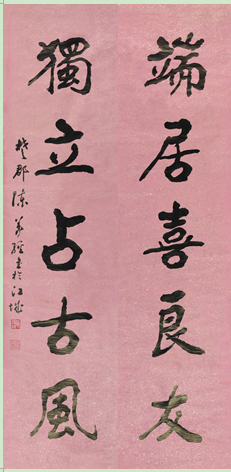 端居喜良友
獨立占古風
楚郡陳義經書於江城